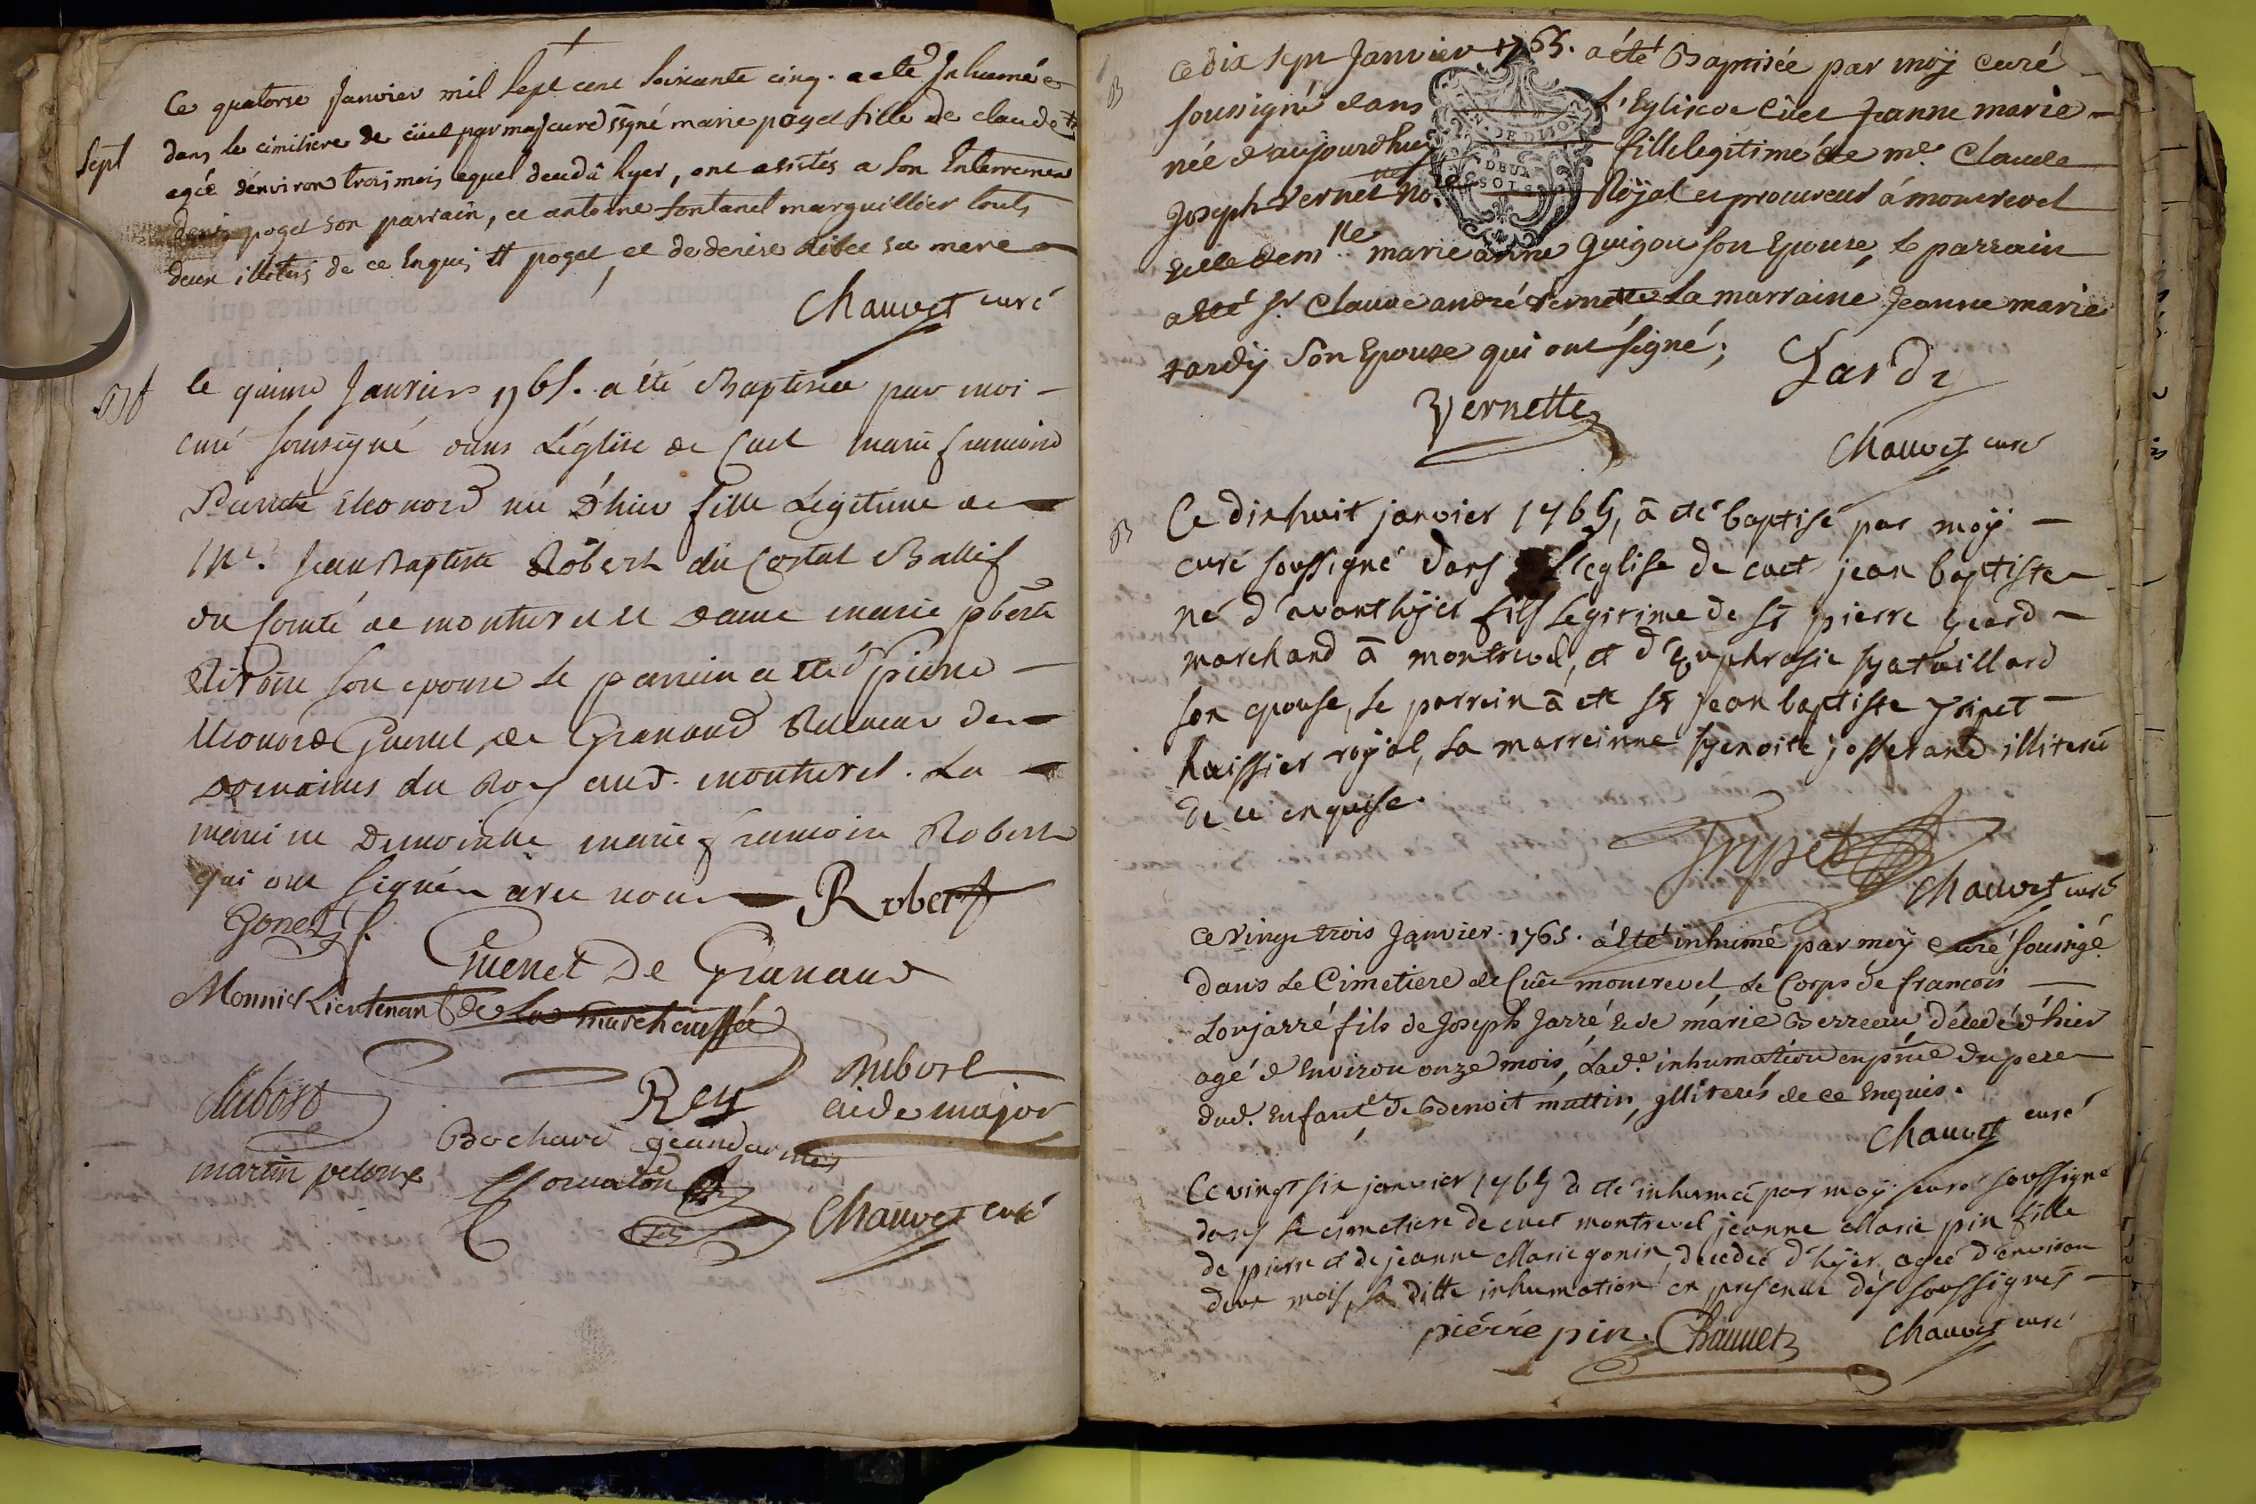 Ce quatorse Janvier mil Sept cent Soixante cinq. a eté Inhumée
Sept
dans le cimitiere de cüet par moy curé ssgné marie poget fille de claude
agée denviron trois mois lequel decedá hyer, ont assistés a son Enterrement
denis poget son parrain, et antoine fontanel marguillier touts
deux illiterés de ce Enquis poget, et de denise sa mere
Chauvet curé
Bt
le quinze Janvier 1765. a été Baptisée par moi
curé soussigné dans L'église de Cuet marie francoise
Pierrette Eleonord née D'hier fille Legitime de
Me. Jean Baptiste Robert du Costal Ballif
du Comté de montrevel et Dame marie
son epouse le parrain a été Sr pierre
Eleonord Guenet de Granaud Receveur des
Domaines du Roy aud. montrevel. La
maraine Demoiselle marie francoise Robert
qui ont signés avec nous
Robert
Gonet
Guenet De Granaud
Monnier Lieutenant de La marechaussée
Dubost
Rey
Dubost
aide major
Bochard geandarmes
martin peloux
Chauvet curé
B
Ce dix sept Janvier 1765. a été Baptisée par moÿ curé
soussigné dans L'Eglise de Cüet Jeanne marie
G. DE DIJON
DEUX
SOLS
née d'aujourdhuy fille legitime de me. Claude
Joseph vernet nore. Roÿal et procureur á montrevel
et de demlle. marie anne guigou son Epouse, le parrain
a été sr. Claude andré vernette La marraine Jeanne marie
tardÿ Son Epouse qui ont signé;
Tardy
Vernette
Chauvet curé
B
Ce dix huit janvier 1765, a eté baptisé par moÿ
curé soussigné dans l'eglise de cuet jean baptiste
né d'avanthÿer fils legitime de sr pierre
marchand a montrevel, et d'Euphrasie
son epouse, le parrein a eté sr jean baptiste tripet
huissier roÿal, la marreinne benoite josserand illiterée
de ce enquise.
Trypet
Chauvet curé
Ce vingt trois Janvier. 1765. a été inhumé par moy curé soussigé
dans le Cimetiere de Cüet montrevel le Corps de francois
Loujarré fils de Joseph Jarré et de marie Berreau, décedé d'hier
agé d'Environ onze mois, Lade. inhumation en pnce du pere
dud. Enfant, et de Benoit muttin, illiterés de ce Enquis.
Chauvet curé
Ce vingt six janvier 1765 a eté inhumeé par moÿ curé soussigné
dans le cimetiere de cuet montrevel jeanne Marie pin fille
de pierre et de jeanne Marie gonin, decedeé d'hÿer ageé d'environ
deux mois, la ditte inhumation en presence des soussignés
piérre pin. Chauvet
Chauvet curé